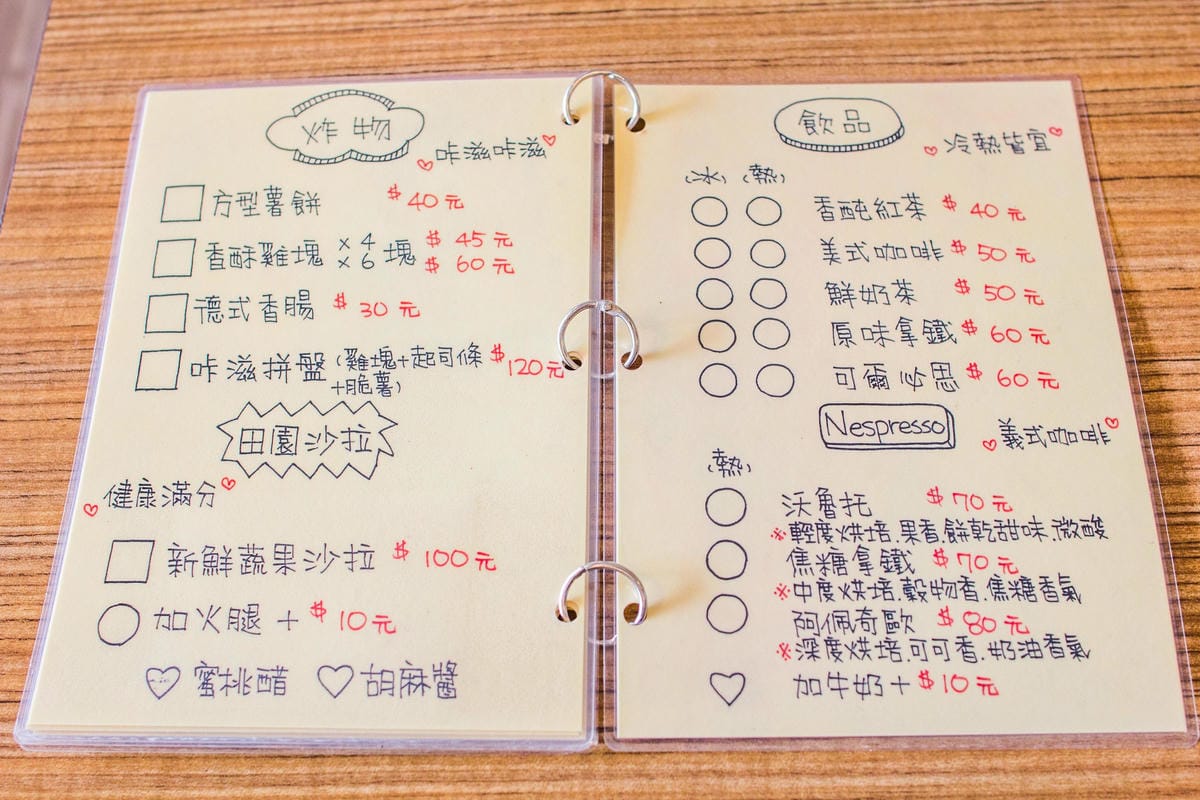 炸物
咔滋咔滋
方型薯餅 $40元
香酥雞塊 x4 塊 $45元
x6 $60元
德式香腸 $30元
咔滋拼盤(雞塊+起司條 $120元
+脆薯)
田園沙拉
健康滿分
新鮮蔬果沙拉 $100元
加火腿+$10元
蜜桃醋 胡麻醬
飲品
冷熱皆宜
(冰) (熱)
香醇紅茶 $40元
美式咖啡 $50元
鮮奶茶 $50元
原味拿鐵 $60元
可爾必思 $60元
Nespresso
義式咖啡
(熱)
沃魯托 $70元
※輕度烘培.果香.餅乾甜味.微酸
焦糖拿鐵 $70元
※中度烘培.穀物香.焦糖香氣
阿佩奇歐 $80元
※深度烘培.可可香.奶油香氣
加牛奶+$10元